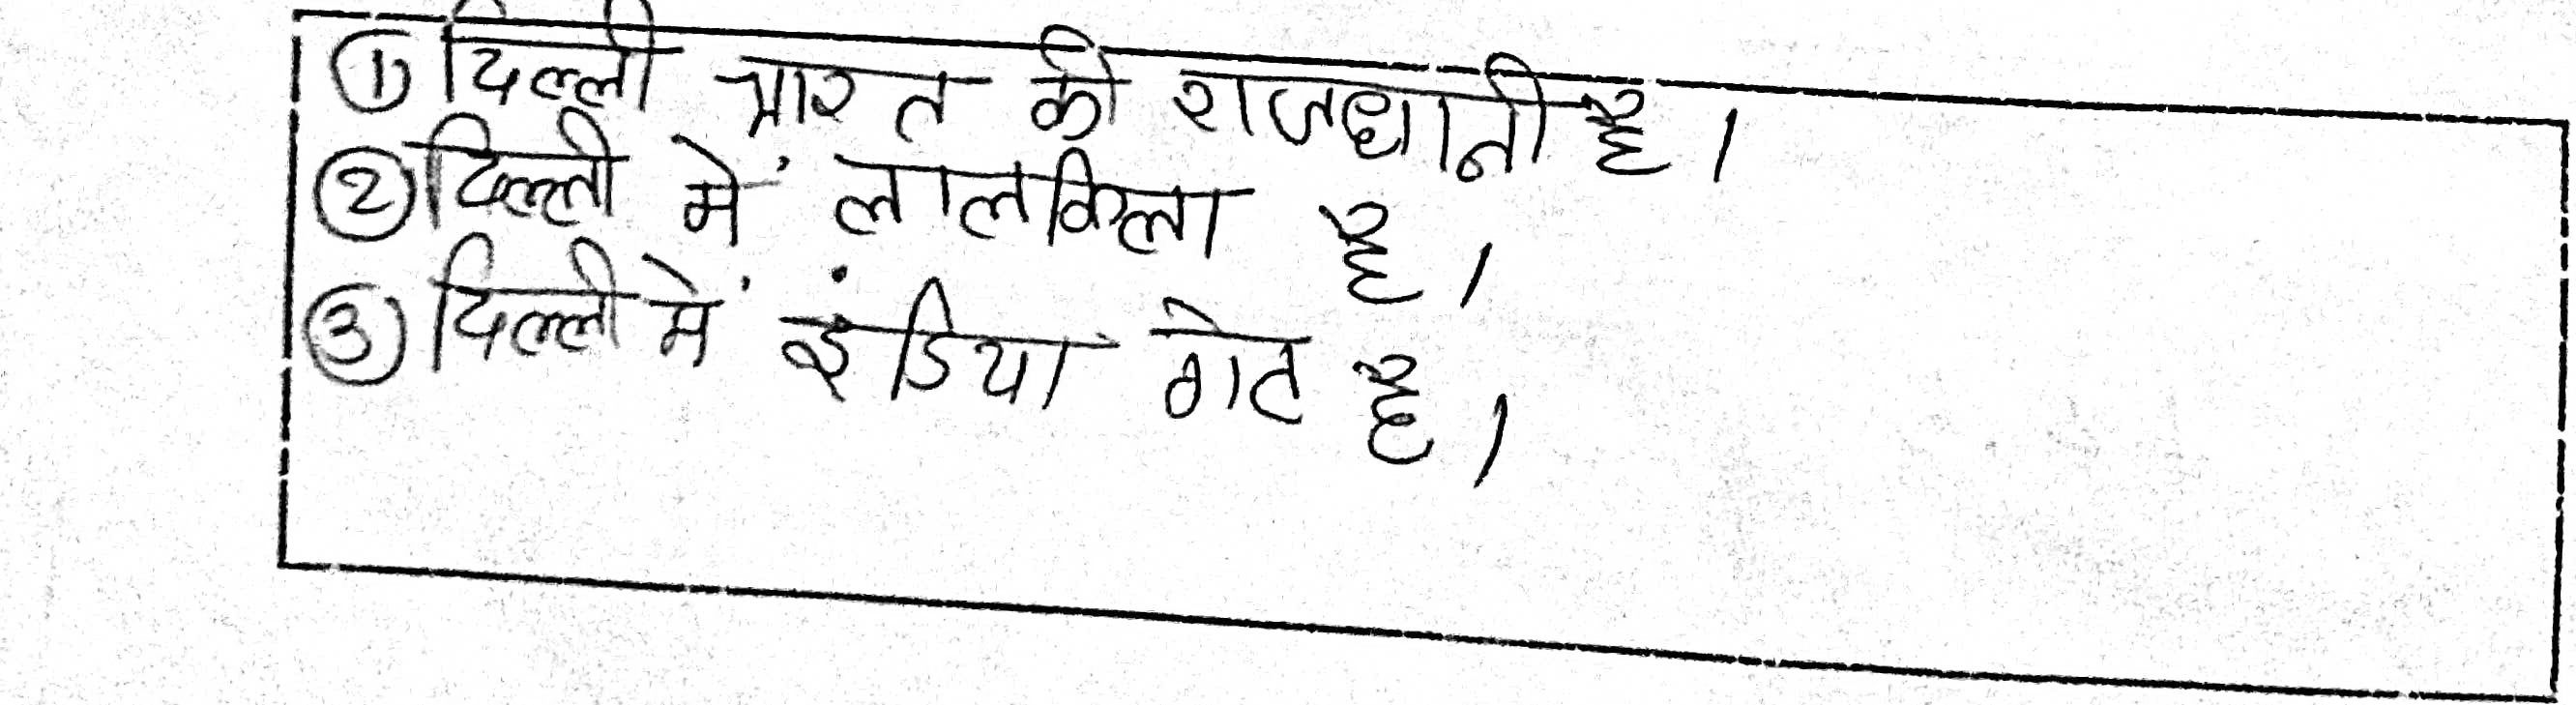 ① दिल्ली भारत की राजधानी है।
② दिल्ली में लालकिला है।
③ दिल्ली में इंडिया गेट है।